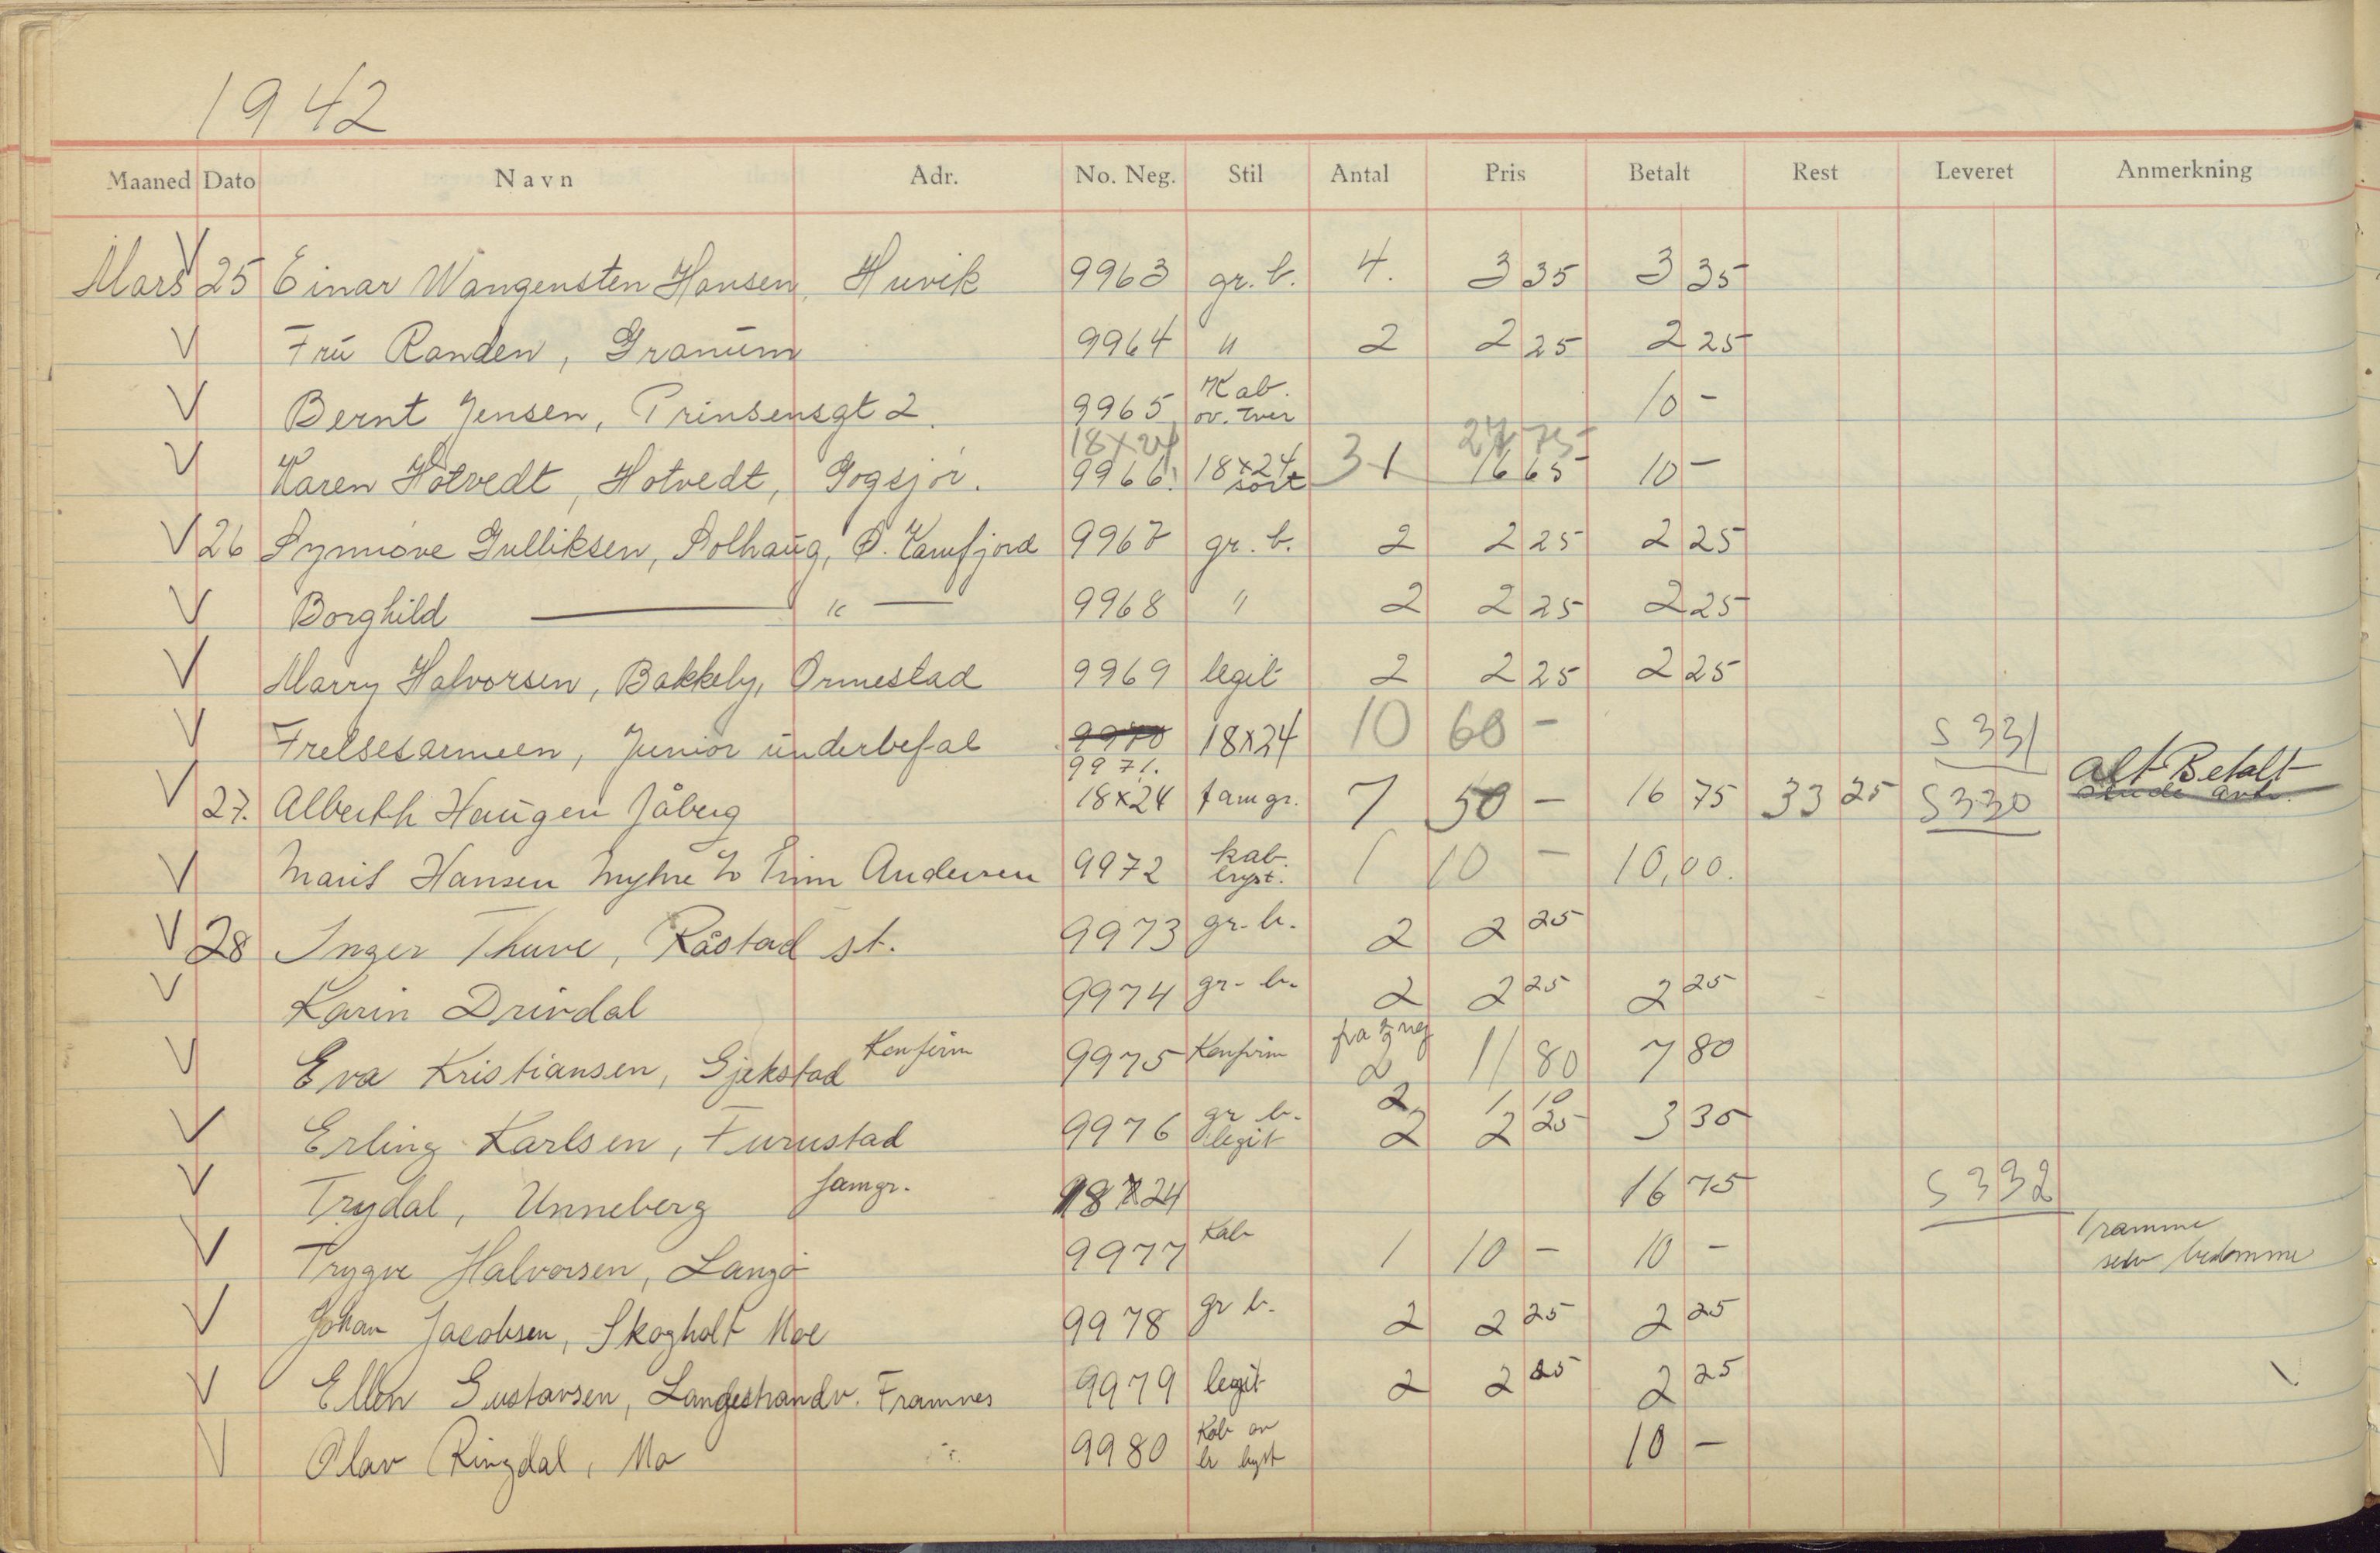 1942
Maaned Dato Navn Adr. No. Neg. Stil Antal Pris Betalt Rest Leveret Anmerkning
Mars V 25 Einar Wangensten Hansen, Huvik 9963 gr. b. 4. 3 35 3 35
V Frū Randen, Granūm 9964 " 2 2 25 2 25
V Bernt Jensen, Prinsensgt 2. 9965 Kab. ov. tver 10 -
V Karen Hotvedt, Hotvedt, Gogsjø. 18x24 9966. 18x24 sort 3 1 27 75 16 65 10 -
V 26 Synnøve Gulliksen, Solhaūg, Ø. Kamfjord 9967 gr. b. 2 2 25 2 25
V Borghild — " — 9968 " 2 2 25 2 25
V Marry Halvorsen, Bakkeby, Ormestad 9969 legit 2 2 25 2 25
V Frelsesarmeen, Junior ūnderbefal 9970 18x24 10 60 - S 331
V 27. Alberth Haūgen Jåberg 9971. 18x24 famgr. 7 50 - 16 75 33 25 S 330 Alt Betalt
V Marit Hansen Myhre Andersen 9972 kab. bryst. 1 10 - 10,00.
V 28 Inger Thuve, Råstad st. 9973 gr. b. 2 2 25
V Karin Drivdal 9974 gr. b. 2 2 25 2 25
V Eva Kristiansen, Gjekstad Konfirm 9975 Konfirm fra 2 neg 2 11 80 7 80
V Erling Karlsen, Furustad 9976 gr b. legit 2 2 1 10 2 25 3 35
V Trydal, Unneberg famgr. 18x24 16 75 S 332
V Trygve Halvorsen, Langø 9977 Kab 1 10 - 10 - ramme
V Johan Jacobsen, Skogholt Moe 9978 gr b. 2 2 25 2 25
V Ellen Gustavsen, Langestrandv. Framnes 9979 legit 2 2 25 2 25
V Olav Ringdal, Mo 9980 Kab 10 -